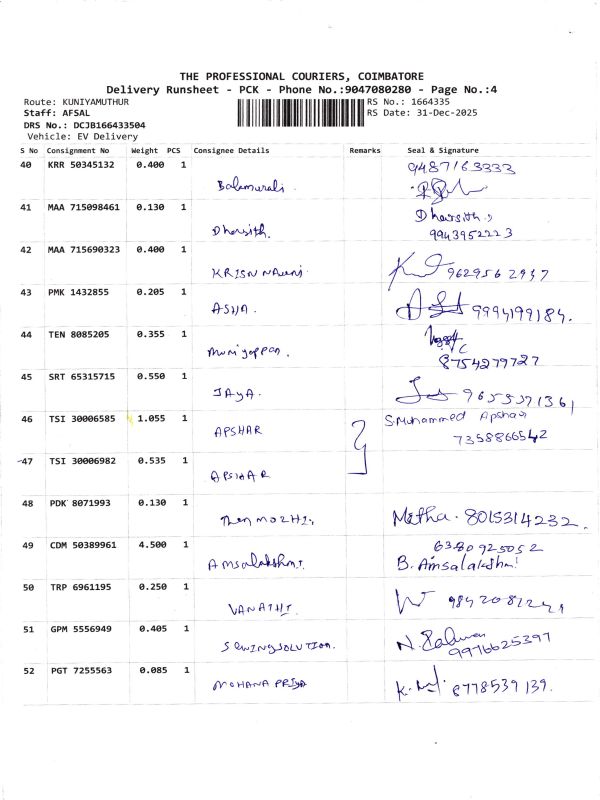 THE PROFESSIONAL COURIERS, COIMBATORE
Delivery Runsheet - PCK - Phone No.:9047080280 - Page No.:4
Route: KUNIYAMUTHUR
RS No.: 1664335
Staff: AFSAL
RS Date: 31-Dec-2025
DRS No.: DCJB166433504
Vehicle: EV Delivery
S No Consignment No Weight PCS Consignee Details Remarks Seal & Signature
40 KRR 50345132 0.400 1 Balamurali. 9487163333
41 MAA 715098461 0.130 1 Dharsith. Dharsith.
9943952223
42 MAA 715690323 0.400 1 9629562937
43 PMK 1432855 0.205 1 ASHA. 9994199184.
44 TEN 8085205 0.355 1 Muniyappan.
8754279727
45 SRT 65315715 0.550 1 JAYA. 9655371361
46 TSI 30006585 1.055 1 APSHAR S.Muhammed Apshar
7358866542
47 TSI 30006982 0.535 1 APSHAR
48 PDK 8071993 0.130 1 THENMOZHI. Metha. 8015314232.
49 CDM 50389961 4.500 1 Amsalakshmi. 6380925052
B. Amsalakshmi
50 TRP 6961195 0.250 1 VANATHI.
51 GPM 5556949 0.405 1 SEWINGSOLUTION. N.
9976625397
52 PGT 7255563 0.085 1 MOHANA PRIYA 8778539139.